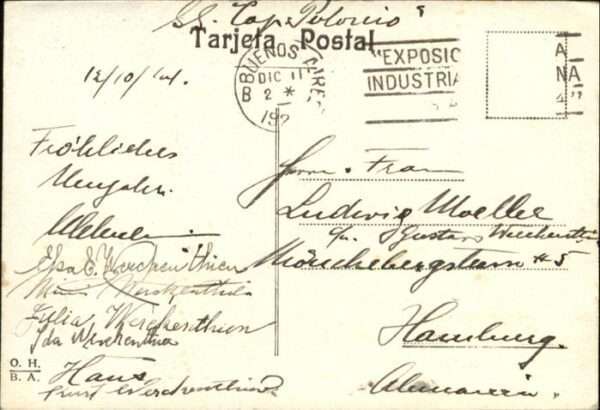 S.S. Cap Polonio
Tarjeta Postal
BUENOS AIRES
DIC 11
B 2 *
192
"EXPOSIC
INDUSTRIA
A
NA
4"
12/10/24.
Fröhliches
Neujahr.
Elsa E. Werckenthien
Werckenthien
Julia Werckenthien
Ida Werckenthien
Hans
Werckenthien
Herrn. Frau
Ludwig Moeller
c/o Gustav
Mönckebergstrasse #5
Hamburg.
Alemania.
O. H.
B. A.